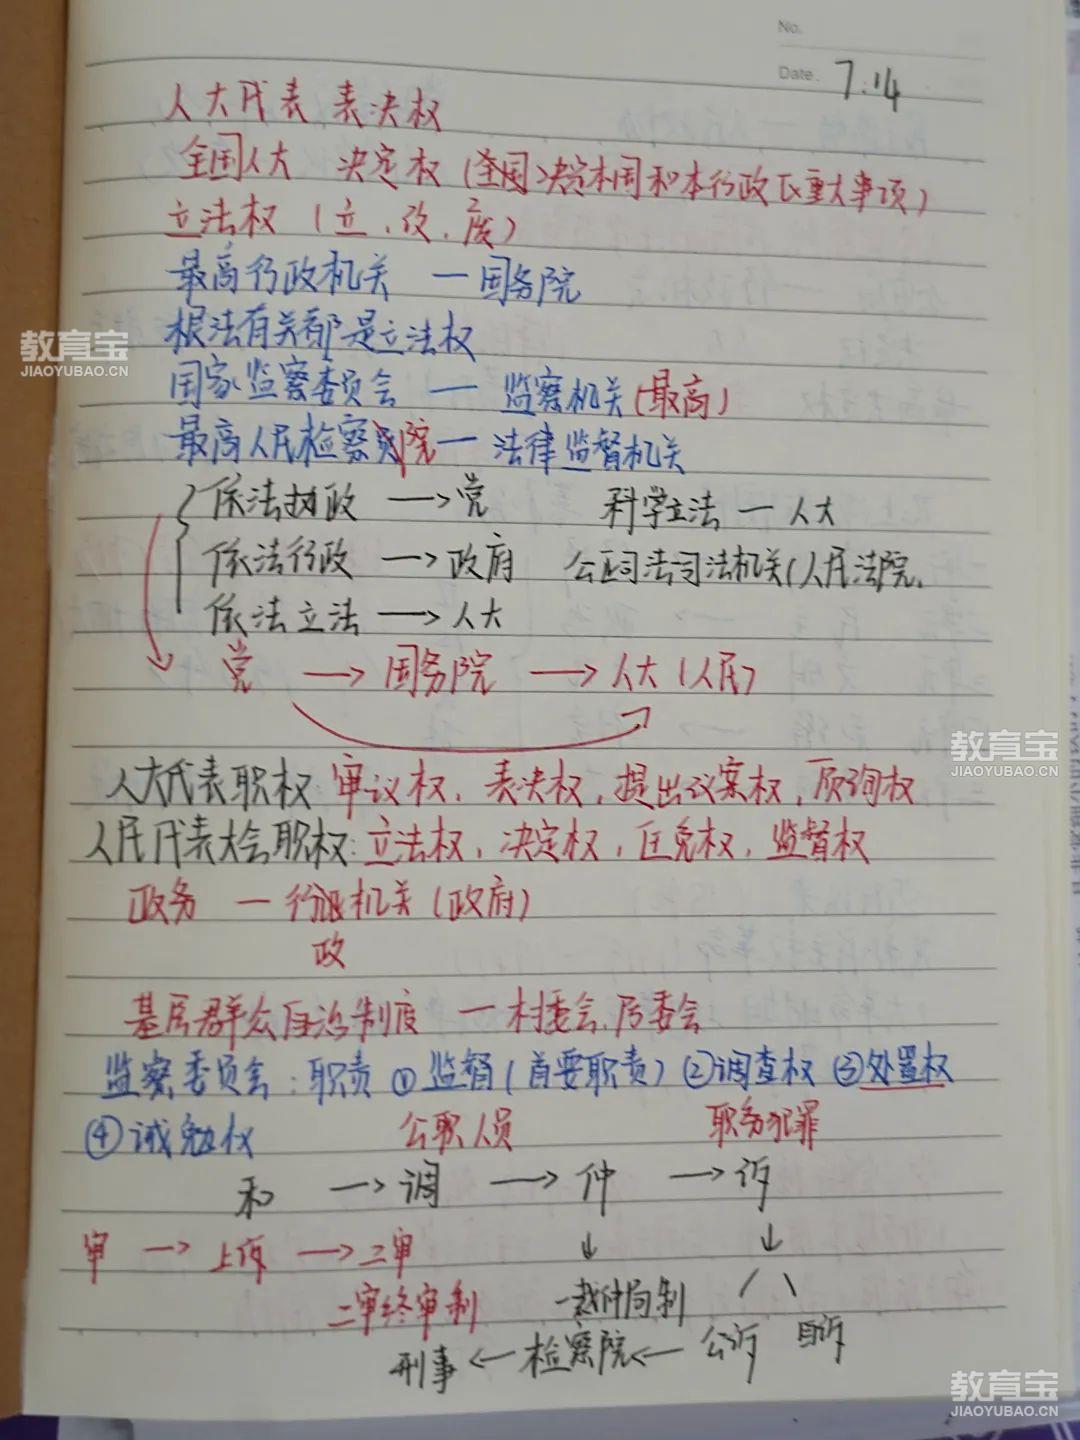 No.
Date. 7.14
人大代表 表决权
全国人大 决定权(全国决定本国和本行政区重大事项)
立法权(立、改、废)
最高行政机关 — 国务院
根法有关都是立法权
国家监察委员会 — 监察机关(最高)
最高人民检察院 — 法律监督机关
依法执政 → 党 科学立法 — 人大
依法行政 → 政府 公正司法司法机关(人民法院、
依法立法 → 人大
党 → 国务院 → 人大(人民)
人大代表职权 审议权、表决权、提出议案权、质询权
人民代表大会职权:立法权、决定权、任免权、监督权
政务 — 行政机关(政府)
政
基层群众自治制度 — 村委会、居委会
监察委员会:职责 ①监督(首要职责) ②调查权 ③处置权
④诫勉权 公职人员 职务犯罪
和 → 调 → 仲 → 诉
审 → 上诉 → 二审
二审终审制 一裁仲局制
刑事 ← 检察院 ← 公诉 自诉
教育宝
JIAOYUBAO.CN
教育宝
JIAOYUBAO.CN
教育宝
JIAOYUBAO.CN